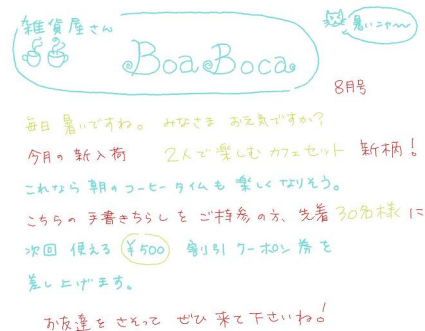 雑貨屋さん
Boa Boca
暑いニャ〜
8月号
毎日 暑いですね。 みなさま お元気ですか?
今月の新入荷 2人で楽しむカフェセット 新柄!
これなら朝のコーヒータイムも楽しくなりそう。
こちらの手書きちらしをご持参の方、先着30名様に
次回 使える ¥500 割引クーポン券を
差し上げます。
お友達をさそって ぜひ来て下さいね!